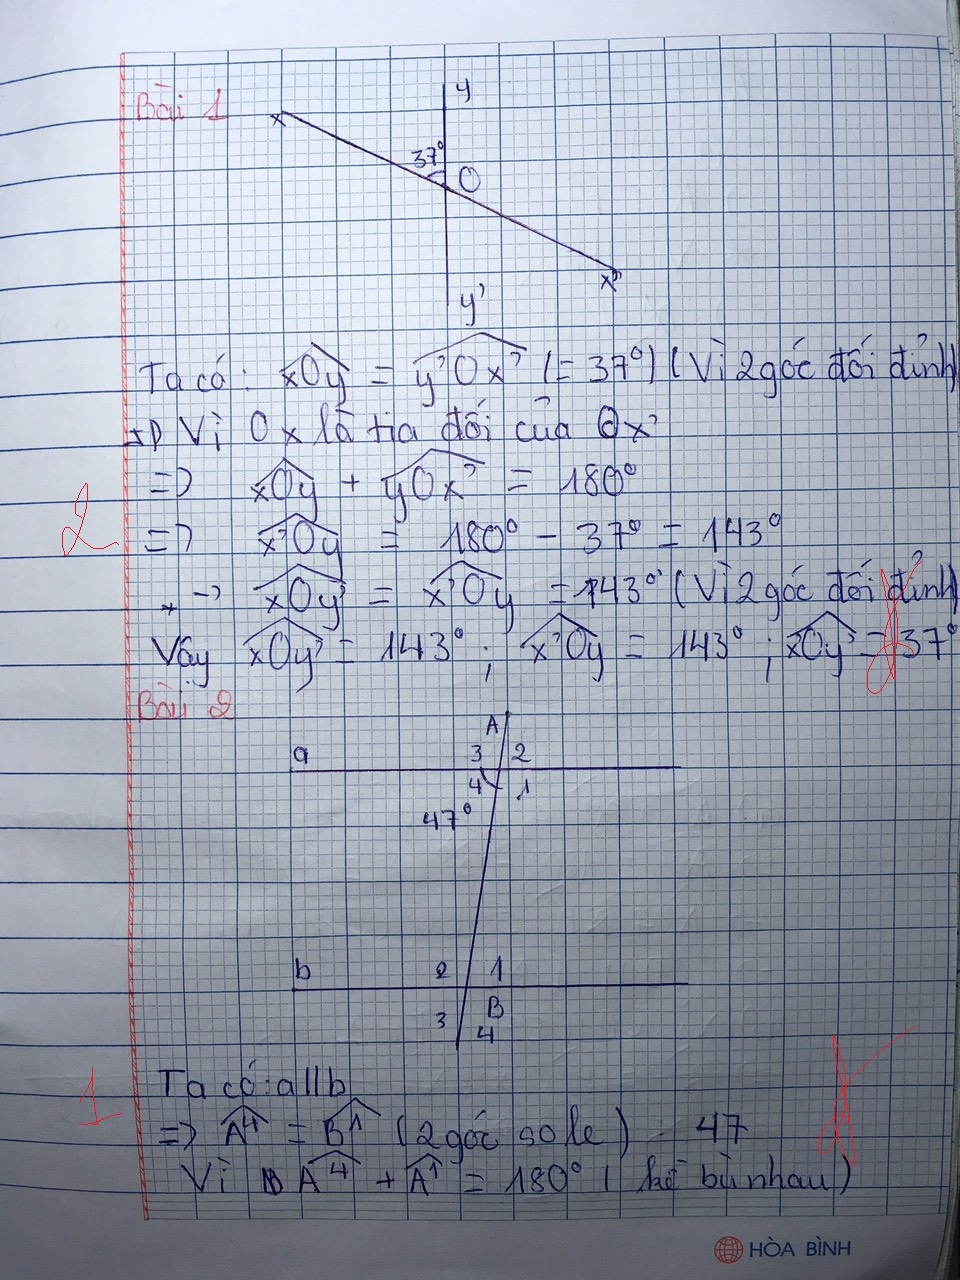 Bài 1
y
x
37°
O
x'
y'
Ta có: xOy = y'Ox' (= 37°) (Vì 2 góc đối đỉnh)
Vì Ox là tia đối của Ox'
=> xOy + yOx' = 180°
2
=> x'Oy = 180° - 37° = 143°
-> xOy' = x'Oy = 143° (Vì 2 góc đối đỉnh)
Vậy xOy' = 143° ; x'Oy = 143° ; x'Oy' = 37°
Bài 2
A
a 3 2
4 1
47°
b 2 1
B
3 4
Ta có: a//b
1
=> A4 = B1 (2 góc so le) 47
Vì A4 + A1 = 180° ( kề bù nhau)
HÒA BÌNH